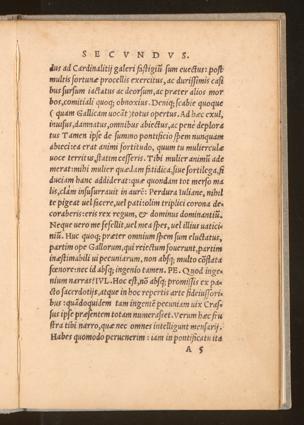 SECVNDVS.
dus ad Cardinalitij galeri fastigiũ sum euectus: post
multis fortunæ procellis exercitus, ac durissimis casi
bus sursum iactatus ac deorsum, ac præter alios mor
bos, comitiali quoq; obnoxius. Deniq; scabie quoque
( quam Gallicam uocãt) totus opertus. Ad hæc exul,
inuisus, damnatus, omnibus abiectus, ac penè deplora
tus Tamen ipse de summo pontificio spem nunquam
abieci: ea erat animi fortitudo, quum tu mulierculæ
uoce territus, statim cesseris. Tibi mulier animũ ade
merat: mihi mulier quædam fatidica, siue sortilega, fi
duciam hanc addiderat: quæ quondam tot merso ma
lis, clàm insusurrauit in aurẽ: Perdura Iuliane, nihil
te pigeat uel facere, uel pati: olim triplici corona de
coraberis: eris rex regum, & dominus dominantiũ.
Neque uero me fefellit, uel mea spes, uel illius uatici-
niũ. Huc quoq; præter omnium spem sum eluctatus,
partim ope Gallorum, qui reiectum fouerunt, partim
inæstimabili ui pecuniarum, non absq; multo cõstata
fœnore: nec id absq; ingenio tamen. PE. Quod inge
nium narras? IVL. Hoc est, nõ absq; promissis ex pa
cto sacerdotijs, atque in hoc repertis arte fideiussori-
bus: quãdoquidem tam ingentẽ pecuniam uix Cras-
sus ipse præsentem totam numerasset. Verum hæc fru
stra tibi narro, quæ nec omnes intelligunt mensarij.
Habes quomodo peruenerim: iam in pontificatu ita
A 5